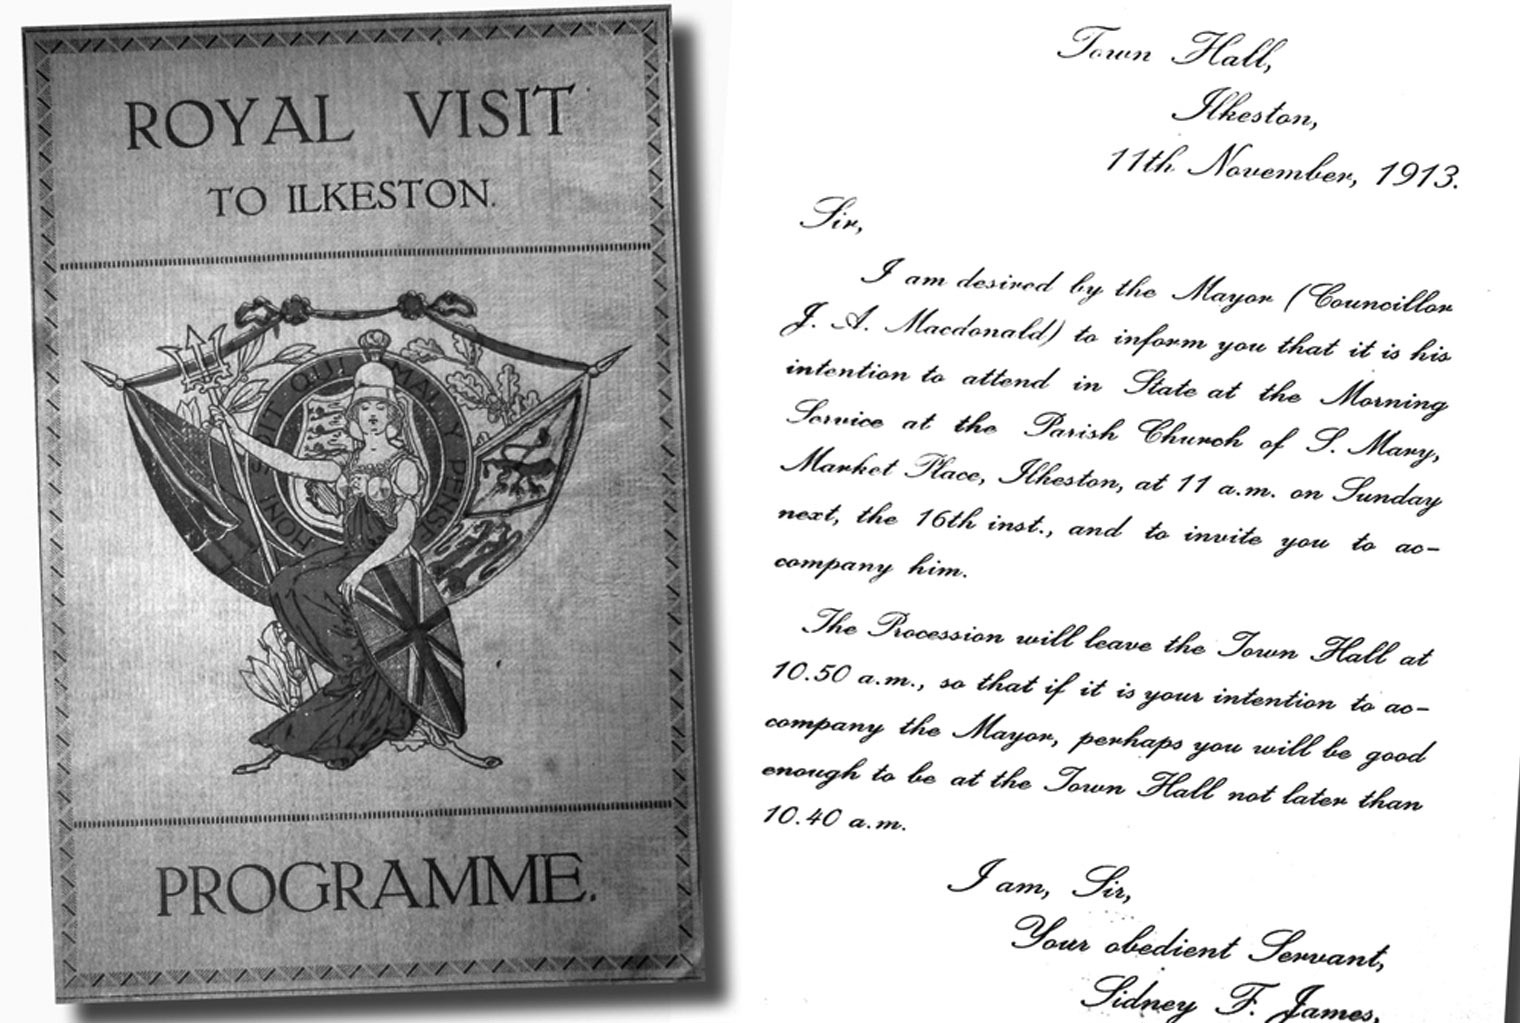 ROYAL VISIT
TO ILKESTON.
HONI SOIT QUI MAL Y PENSE
PROGRAMME.
Town Hall,
Ilkeston,
11th November, 1913.
Sir,
I am desired by the Mayor (Councillor
J. A. Macdonald) to inform you that it is his
intention to attend in State at the Morning
Service at the Parish Church of S. Mary,
Market Place, Ilkeston, at 11 a.m. on Sunday
next, the 16th inst., and to invite you to ac-
company him.
The Procession will leave the Town Hall at
10.50 a.m., so that if it is your intention to ac-
company the Mayor, perhaps you will be good
enough to be at the Town Hall not later than
10.40 a.m.
I am, Sir,
Your obedient Servant,
Sidney F. James,